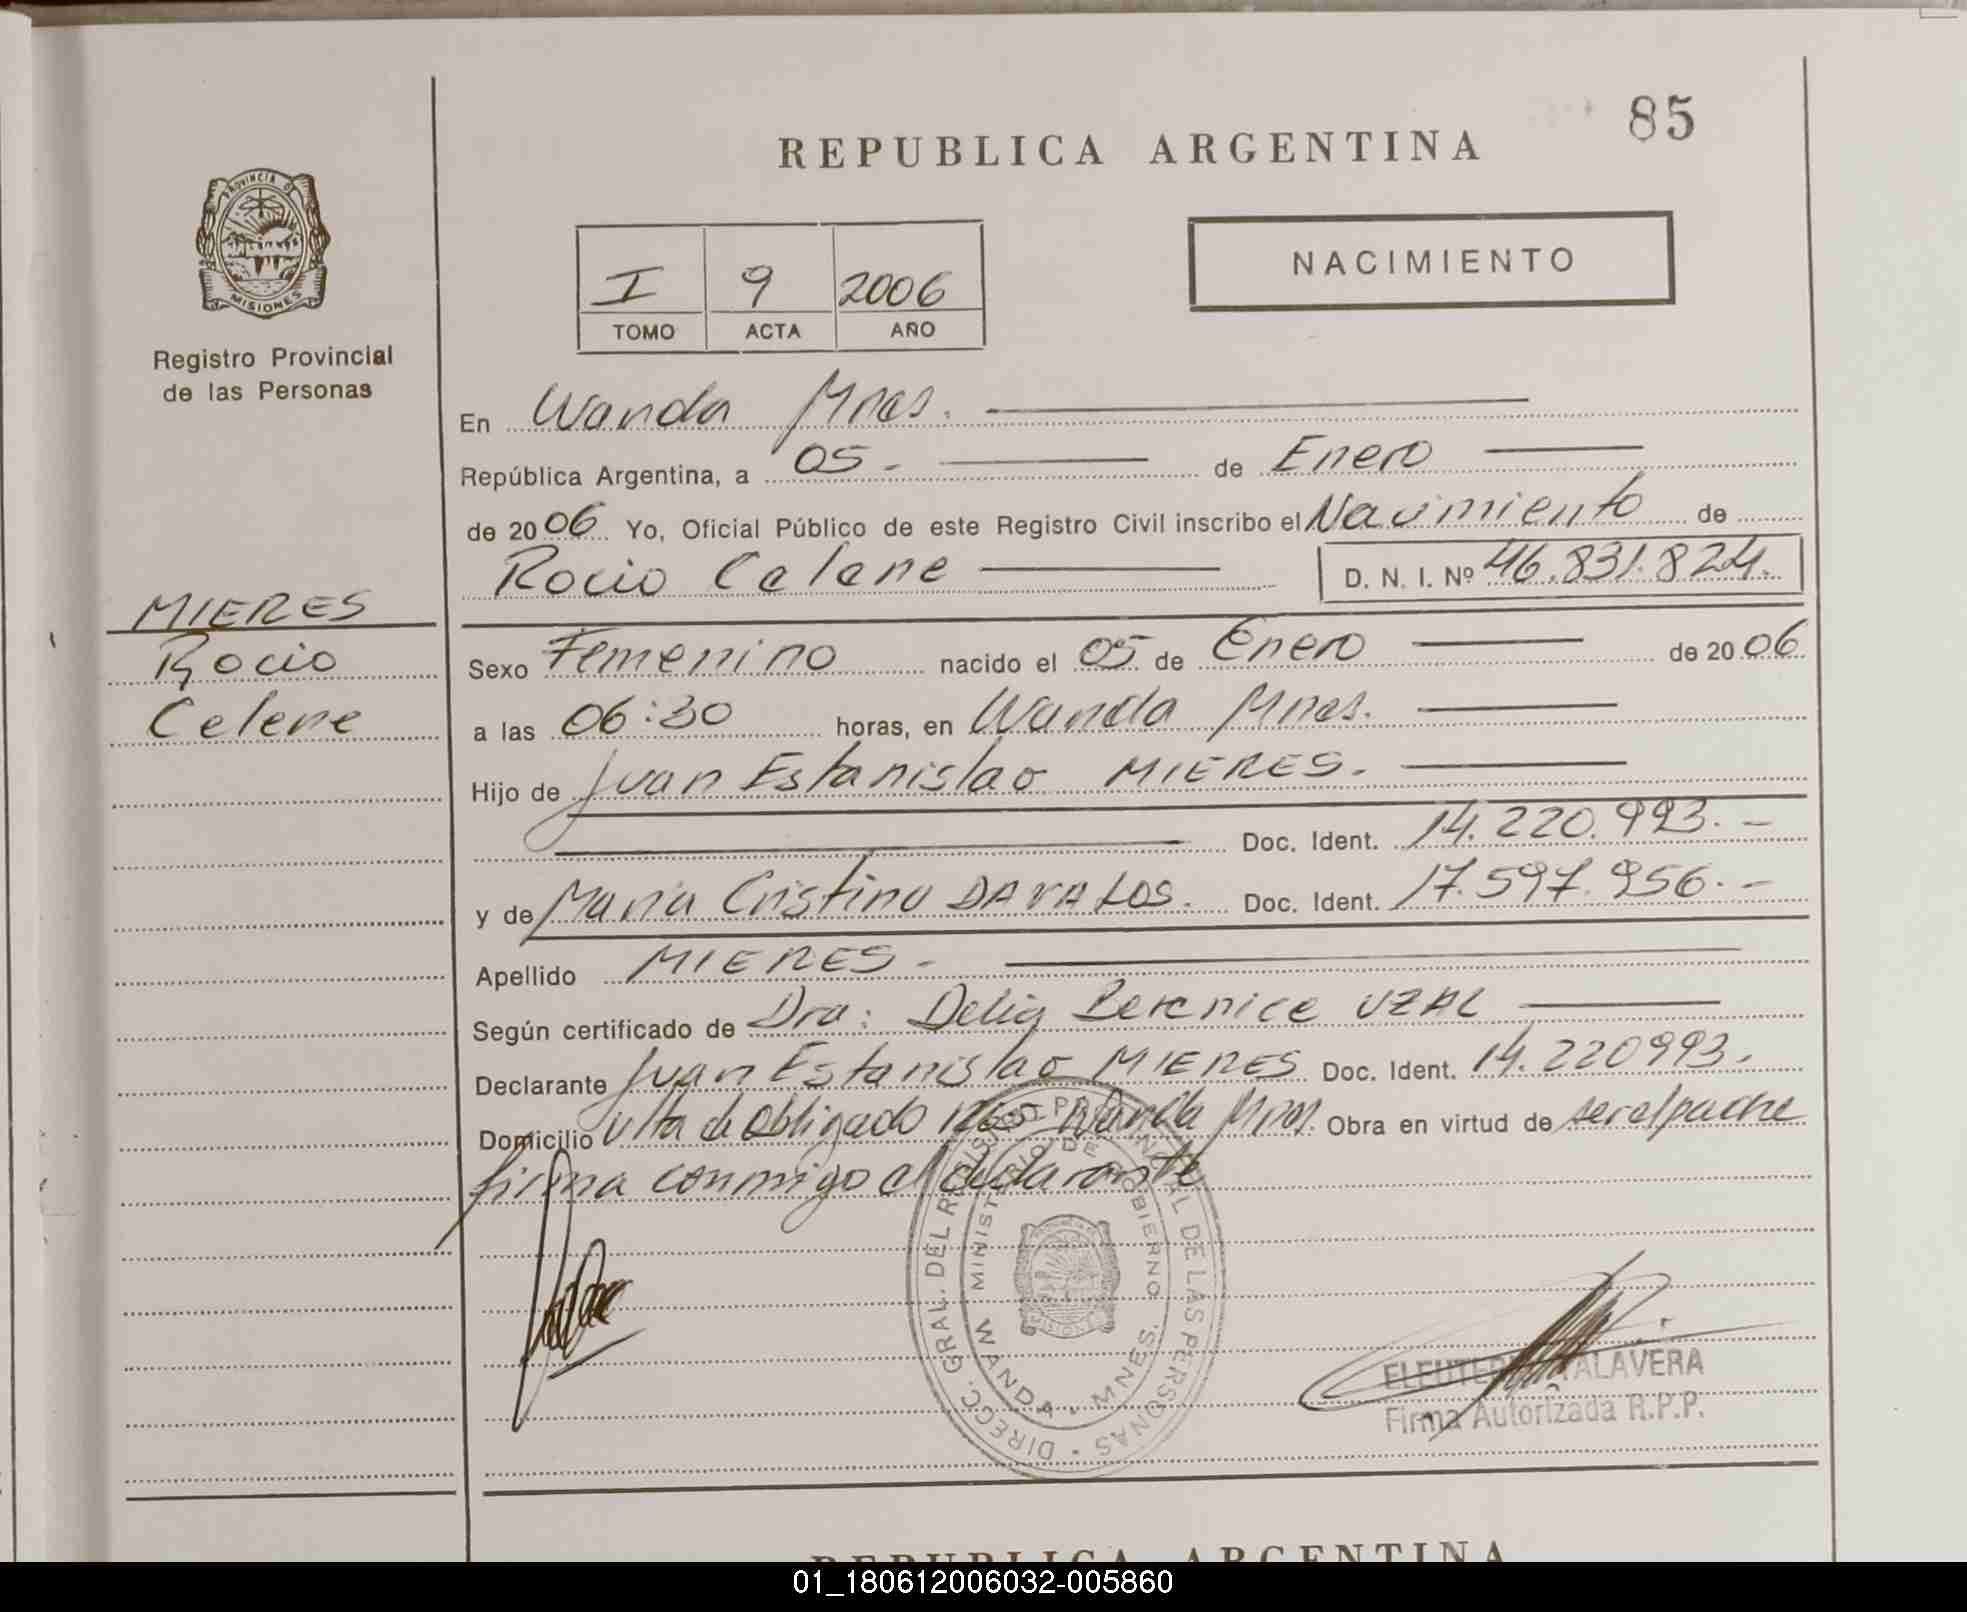 85
REPUBLICA ARGENTINA
PROVINCIA DE
MISIONES
Registro Provincial
de las Personas
I 9 2006
TOMO ACTA AÑO
NACIMIENTO
En Wanda Mnes.
República Argentina, a 05. de Enero
de 2006 Yo, Oficial Público de este Registro Civil inscribo el Nacimiento de
Rocio Celene D. N. I. Nº 46.831.824.
MIERES
Rocio
Celene
Sexo Femenino nacido el 05 de Enero de 2006
a las 06:30 horas, en Wanda Mnes.
Hijo de Juan Estanislao MIERES.
Doc. Ident. 14.220.993.-
y de Maria Cristina DAVALOS. Doc. Ident. 17.597.956.-
Apellido MIERES.
Según certificado de Dra: Delia Berenice UZAL
Declarante Juan Estanislao MIERES Doc. Ident. 14.220993.
Domicilio Vlta de Obligado Wanda Mnes. Obra en virtud de ser el padre
firma conmigo el declarante
DIRECC. GRAL. DEL REGISTRO PROVINCIAL DE LAS PERSONAS
MINISTERIO DE GOBIERNO
WANDA - MNES.
MISIONES
ELEUTERIO TALAVERA
Firma Autorizada R.P.P.
REPUBLICA ARGENTINA
01_180612006032-005860